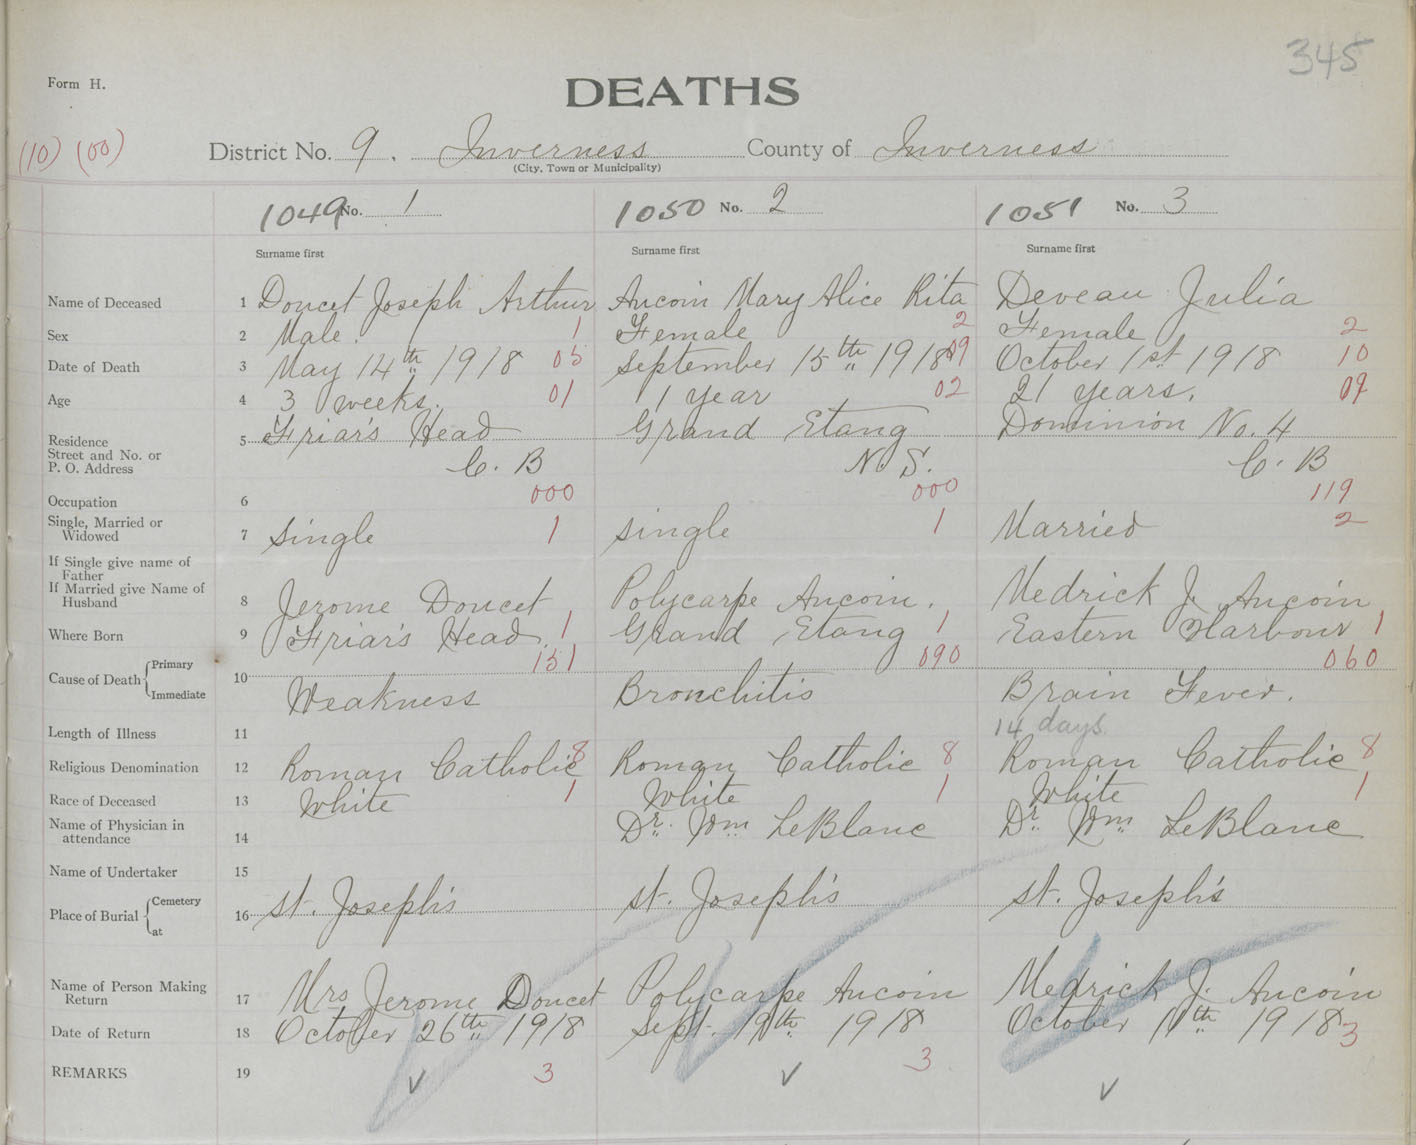 345
Form H.
DEATHS
(10) (00) District No. 9. Inverness County of Inverness
(City, Town or Municipality)
1049 No. 1 1050 No. 2 1051 No. 3
Surname first Surname first Surname first
Name of Deceased 1 Doucet Joseph Arthur Aucoin Mary Alice Rita Deveau Julia
Sex 2 Male. 1 Female 2 Female 2
Date of Death 3 May 14th 1918 05 September 15th 1918 09 October 1st 1918 10
Age 4 3 weeks. 01 1 year 02 21 years. 09
Residence 5 Friar's Head Grand Etang Dominion No. 4
Street and No. or
P. O. Address C. B N. S. C. B
000 000 119
Occupation 6
Single, Married or
Widowed 7 Single 1 Single 1 Married 2
If Single give name of
Father
If Married give Name of
Husband 8 Jerome Doucet Polycarpe Aucoin. Medrick J. Aucoin
Where Born 9 Friar's Head. 1 Grand Etang 1 Eastern Harbour 1
151 090 060
Cause of Death Primary
Immediate 10 Weakness Bronchitis Brain Fever.
Length of Illness 11 14 days.
Religious Denomination 12 Roman Catholic 8 Roman Catholic 8 Roman Catholic 8
Race of Deceased 13 White 1 White 1 White 1
Name of Physician in
attendance 14 Dr. Wm LeBlanc Dr. Wm LeBlanc
Name of Undertaker 15
Place of Burial Cemetery
at 16 St. Joseph's St. Joseph's St. Joseph's
Name of Person Making
Return 17 Mrs Jerome Doucet Polycarpe Aucoin Medrick J. Aucoin
Date of Return 18 October 26th 1918 Sept. 19th 1918 October 11th 1918 3
REMARKS 19 3 3